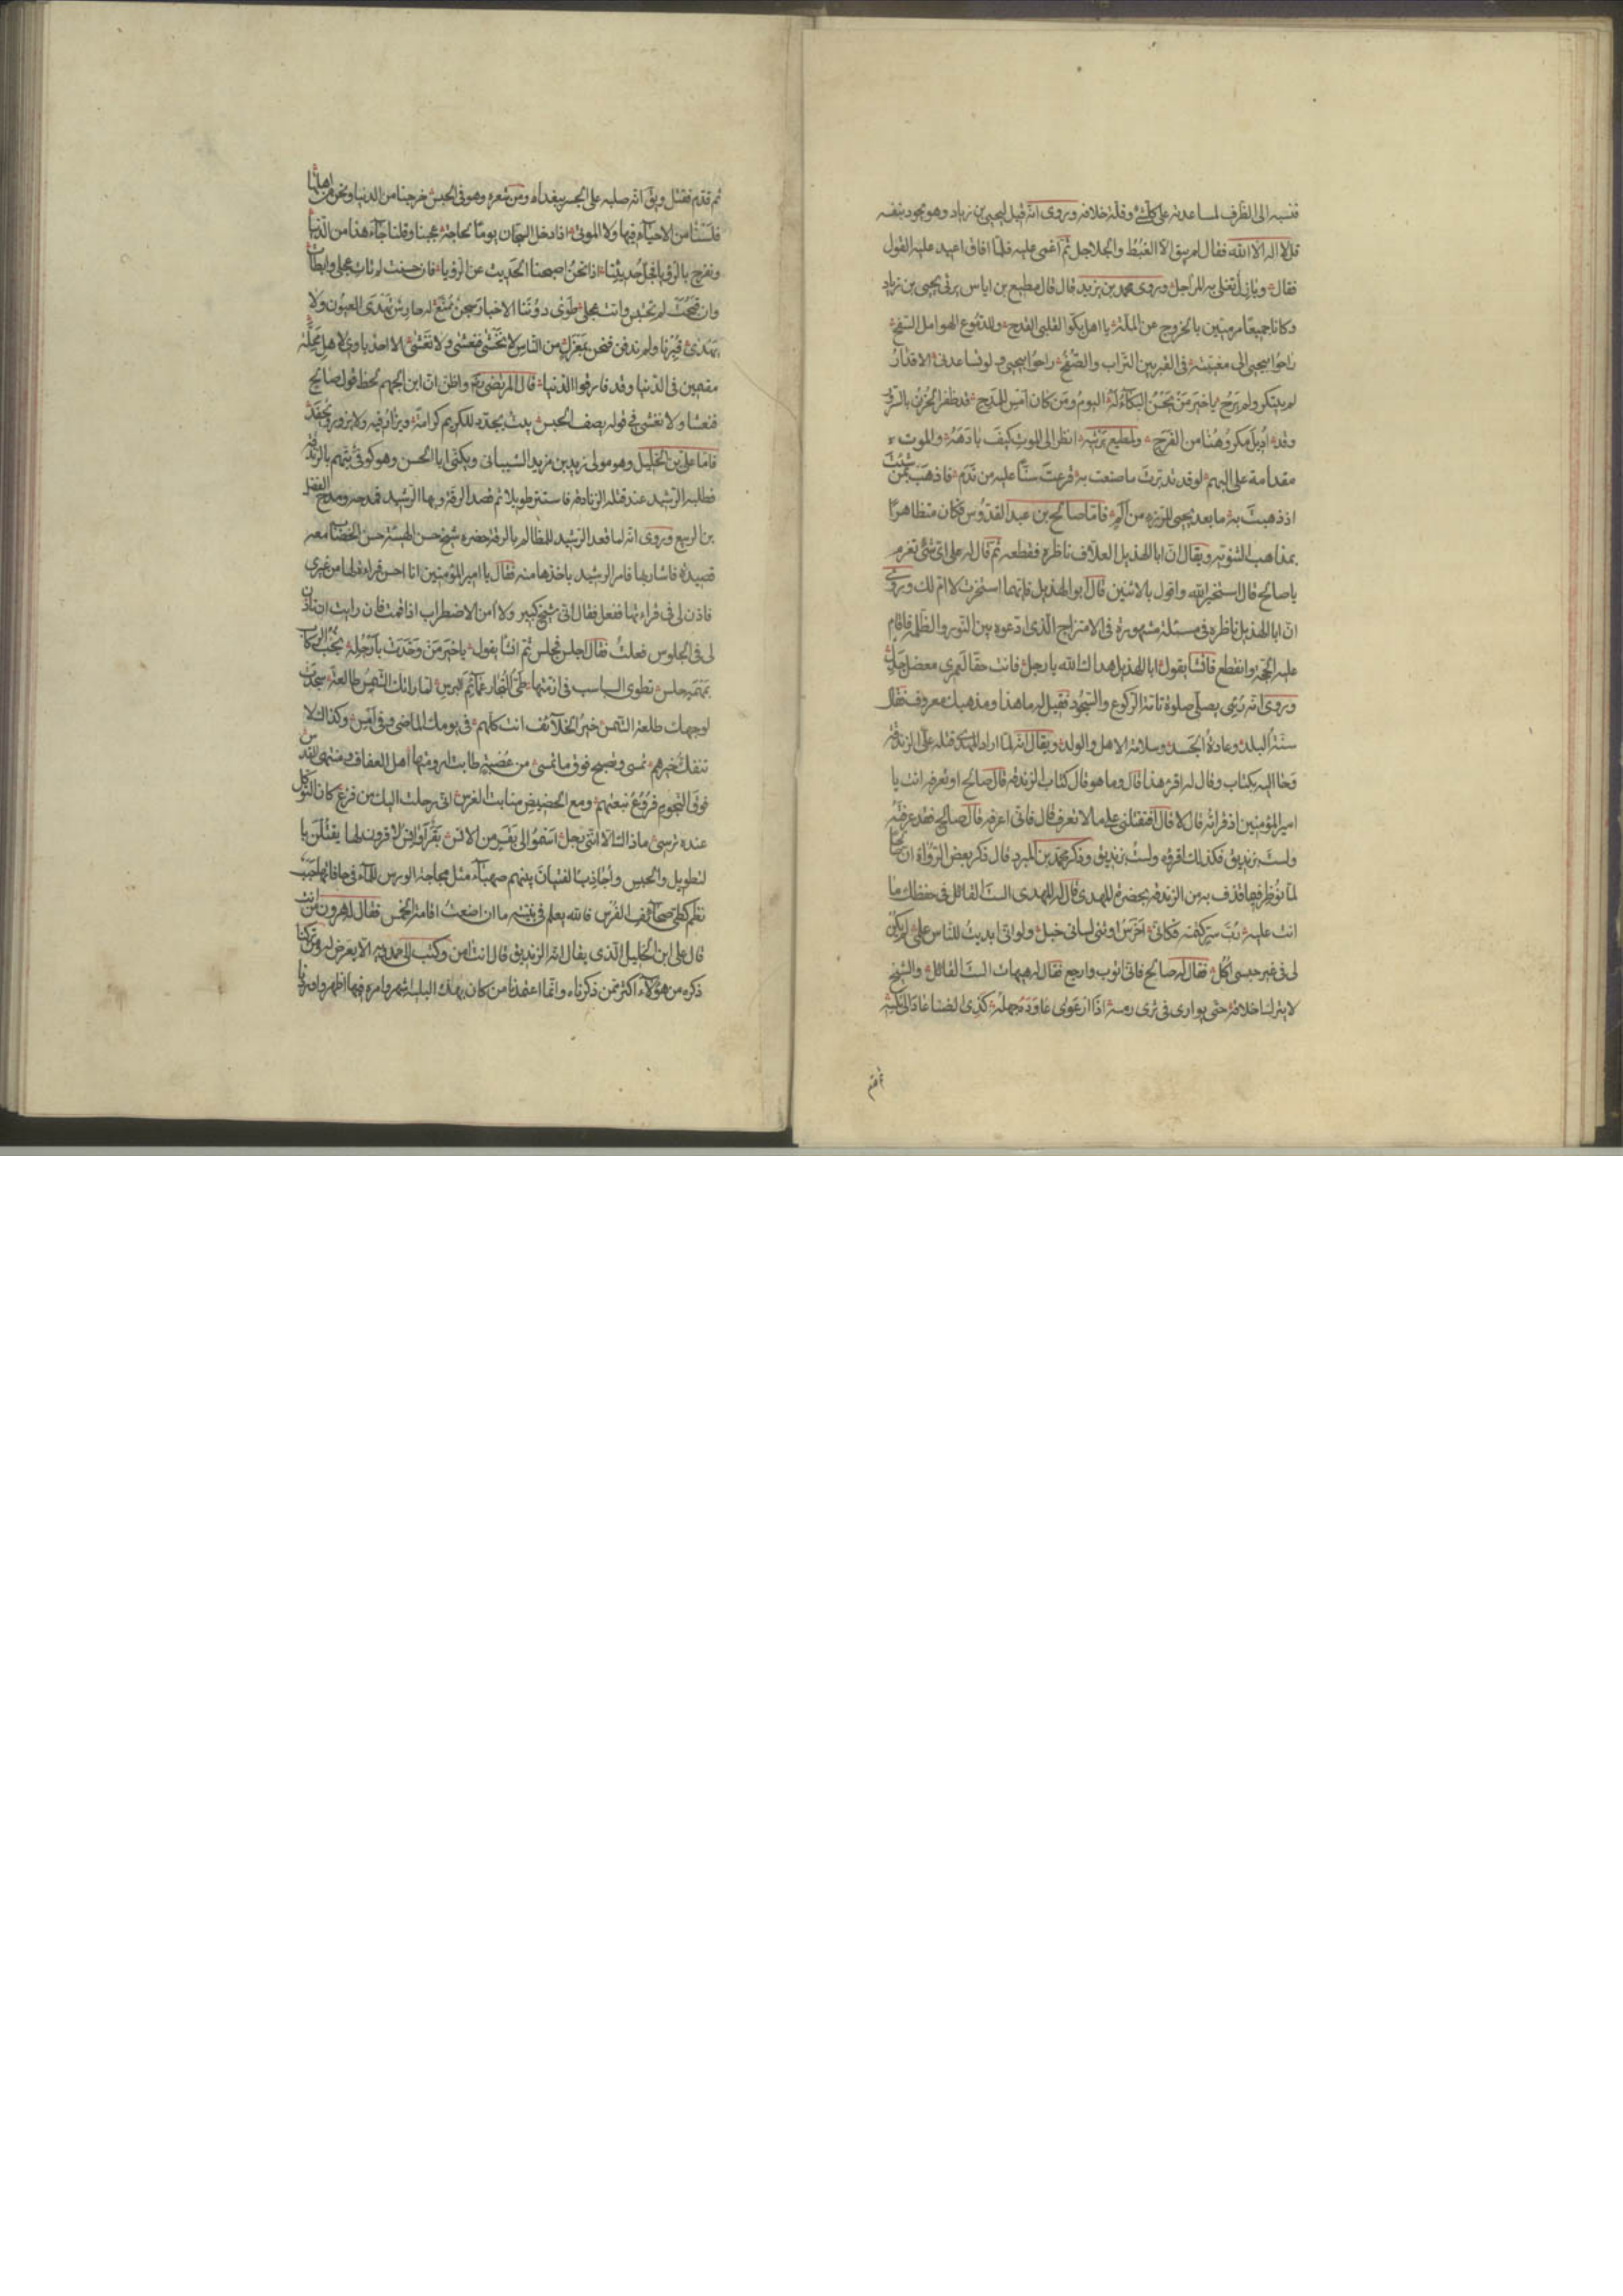 فنسبه الى الظرف لمساعدته على كل شئ وقلة خلافه وروى انه قيل ليحيى بن زياد وهو يجود بنفسه
قل لا اله الا الله فقال لم يبق الا القبط والجلاجل ثم اغمى عليه فلما افاق اعيد عليه القول
فقال تغلى به المراجل وروى محمد بن يزيد قال قال مطيع بن اياس يرثى يحيى بن زياد
وكانا جميعا مرميين بالخروج عن الملة يا اهل بكوا لقلبى القرح وللدموع الهوامل السفح
راحوا بيحيى الى مغيبة فى القبر بين التراب والصفح راحوا بيحيى ولو تساعدنى الاقدار
لم يبتكر ولم يرح يا خير من يحسن البكاء له اليوم ومن كان امس للمدح قد ظفر الحزن بالسرور
وقد اديل مكروهنا من الفرح ولمطيع يرثيه انظر الى الموت كيف بادهه والموت
مقدامة على البهم لو قد تدبرت ما صنعت به قرعت سنا عليه من ندم فاذهب بمن شئت
اذ ذهبت به ما بعد يحيى للرزء من الم فاما صالح بن عبد القدوس فكان متظاهرا
بمذاهب الثنوية ويقال ان ابا الهذيل العلاف ناظره فقطعه ثم قال له على اى شئ تعزم
يا صالح قال استخير الله واقول بالاثنين قال ابو الهذيل فايهما استخرت لا ام لك وروى
ان ابا الهذيل ناظره فى مسئلة مشهورة فى الامتزاج الذى ادعوه بين النور والظلمة فاقام
عليه الحجة وانقطع فانشأ يقول ابا الهذيل هداك الله يا رجل فانت حقا لعمرى معضل جدل
وروى انه رئى يصلى صلوة تامة الركوع والسجود فقيل له ما هذا ومذهبك معروف فقال
سنة البلد وعادة الجسد وسلامة الاهل والولد ويقال انه لما اراد المهدى قتله على الزندقة
اليه بكتاب وقال له اقرء هذا قال وما هو قال كتاب الزندقة قال صالح او تعرفه انت يا
امير المؤمنين اذ قرأته قال لا قال افتقتلنى على ما لا تعرف قال فانى اعرفه قال صالح فقد عرفته
ولست بزنديق فكذلك اقرؤه ولست بزنديق وذكر محمد بن المبرد قال ذكر بعض الرواة ان صالحا
لما نوظر فيما قذف به من الزندقة بحضرة المهدى قال له المهدى الست القائل فى حفظك ما
انت عليه رب سر كتمته فكانى اخرس او ثنى لسانى خبل ولو انى ابديت للناس علمى لم يكن
لى فى غير حبسى اكل فقال له صالح فانى اتوب وارجع فقال له هيهات الست القائل والشيخ
لا يترك اخلاقه حتى يوارى فى ثرى رمسه اذا ارعوى عاوده جهله كذى الضنا عاد الى نكسه
ثم قدم
ثم قدم فقتل ويق انه صلبه على الجسر ببغداد ومن شعره وهو فى الحبس خرجنا من الدنيا ونحن من اهلها
فلسنا من الاحياء فيها ولا الموتى اذا دخل السجان يوما لحاجة عجبنا وقلنا جاء هذا من الدنيا
ونفرح بالرؤيا فجل حديثنا اذا نحن اصبحنا الحديث عن الرؤيا فان حسنت لم تات عجلى وابطات
وان قبحت لم تحتبس واتت عجلى طوى دوننا الاخبار سجن ممنع له حارس تهدى العيون ولا
يهدى قبرنا ولم ندفن فنحن بمعزل من الناس لا نخشى فنغشى ولا نغشى الا احد ياوى لاهل محلة
مقيمين فى الدنيا وقد فارقوا الدنيا قال المرتضى ره واظن ان ابن الجهم لحظ قول صالح
فنغشا ولا نغشى فى قوله يصف الحبس بيت يجدد للكريم كرامة ويزار فيه ولا يزور ويحفد
فاما على بن الخليل وهو مولى يزيد بن مزيد الشيبانى ويكنى ابا الحسن وهو كوفى يتهم بالزندقة
فطلبه الرشيد عند قتله الزنادقة فاستتر طويلا ثم قصد الرقة وبها الرشيد فمدحه ومدح الفضل
بن الربيع وروى انه لما قعد الرشيد للمظالم بالرقة حضره شيخ حسن الهيئة حسن الخضاب معه
قصيدة فاشار بها فامر الرشيد باخذها منه فقال يا امير المؤمنين انا احسن قراءة لها من غيرى
فاذن لى فى قراءتها ففعل فقال انى شيخ كبير ولا امن الاضطراب اذا قمت فان رايت ان تاذن
لى فى الجلوس فعلت فقال اجلس فجلس ثم انشا يقول يا خير من وخدت بارحله نجب الركاب
بمهمه جلس تطوى السباسب فى ازمتها طى التجار عمائم البرس لما راتك الشمس طالعة سجدت
لوجهك طلعة الشمس خير الخلائف انت كلهم فى يومك الماضى وفى امس وكذاك لا
تنفك خيرهم تمسى وتصبح فوق ما تمسى من عصبة طابت ارومتها اهل العفاف ومنتهى القدس
فوق النجوم فروع نبعتهم ومع الحضيض منابت الغرس انى رحلت اليك من فزع كان التوكل
عنده ترسى ماذاك الا اننى رجل اصبو الى بقر من الانس بقر اوانس لا قرون لها يقتلن با
لتطويل والحبس واجاذب الفتيان بينهم صهباء مثل مجاجة الورس للماء فى حافاتها حبب
نظم كطى صحائف الفرس فالله يعلم فى بنيته ما ان اضعت اقامة الخمس فقال له هرون من انت
قال على ابن الخليل الذى يقال انه الزنديق قال انت امن وكتب الى حمدويه الا يعرض له ومن تركنا
ذكره من هؤلاء اكثر ممن ذكرناه وانما اعتمدنا من كان بهذه البلية شهر وامره فيها اظهر واوردنا